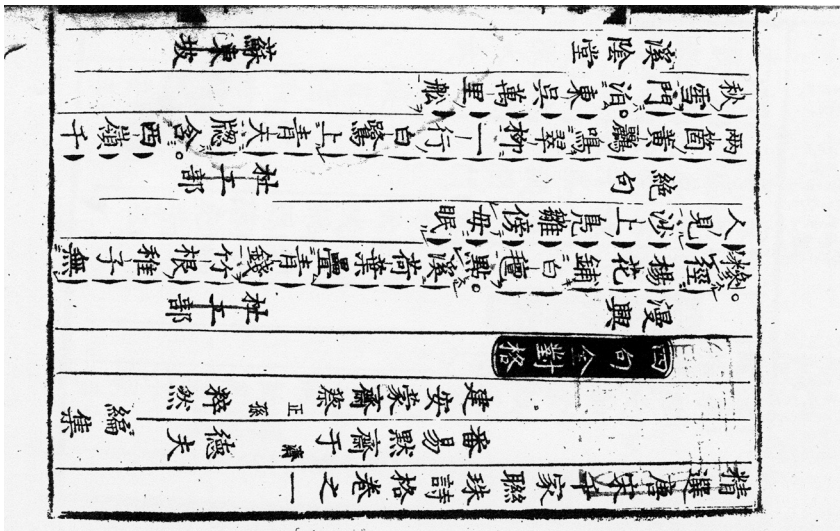 精選唐宋千家聯珠詩格卷之一
番昜默齋于濟德夫
建安蒙齋蔡正孫粹然
編集
四句全對格
漫興 杜工部
糝徑楊花鋪白氊。點溪荷葉疊青錢竹根稚子無
人見沙上鳬雛傍母眠
絕句 杜工部
兩箇黃鸝鳴翠柳一行白鷺上青天牎含。西嶺千
秋雪門泊。東吳萬里舩
溪陰堂 蘇東坡